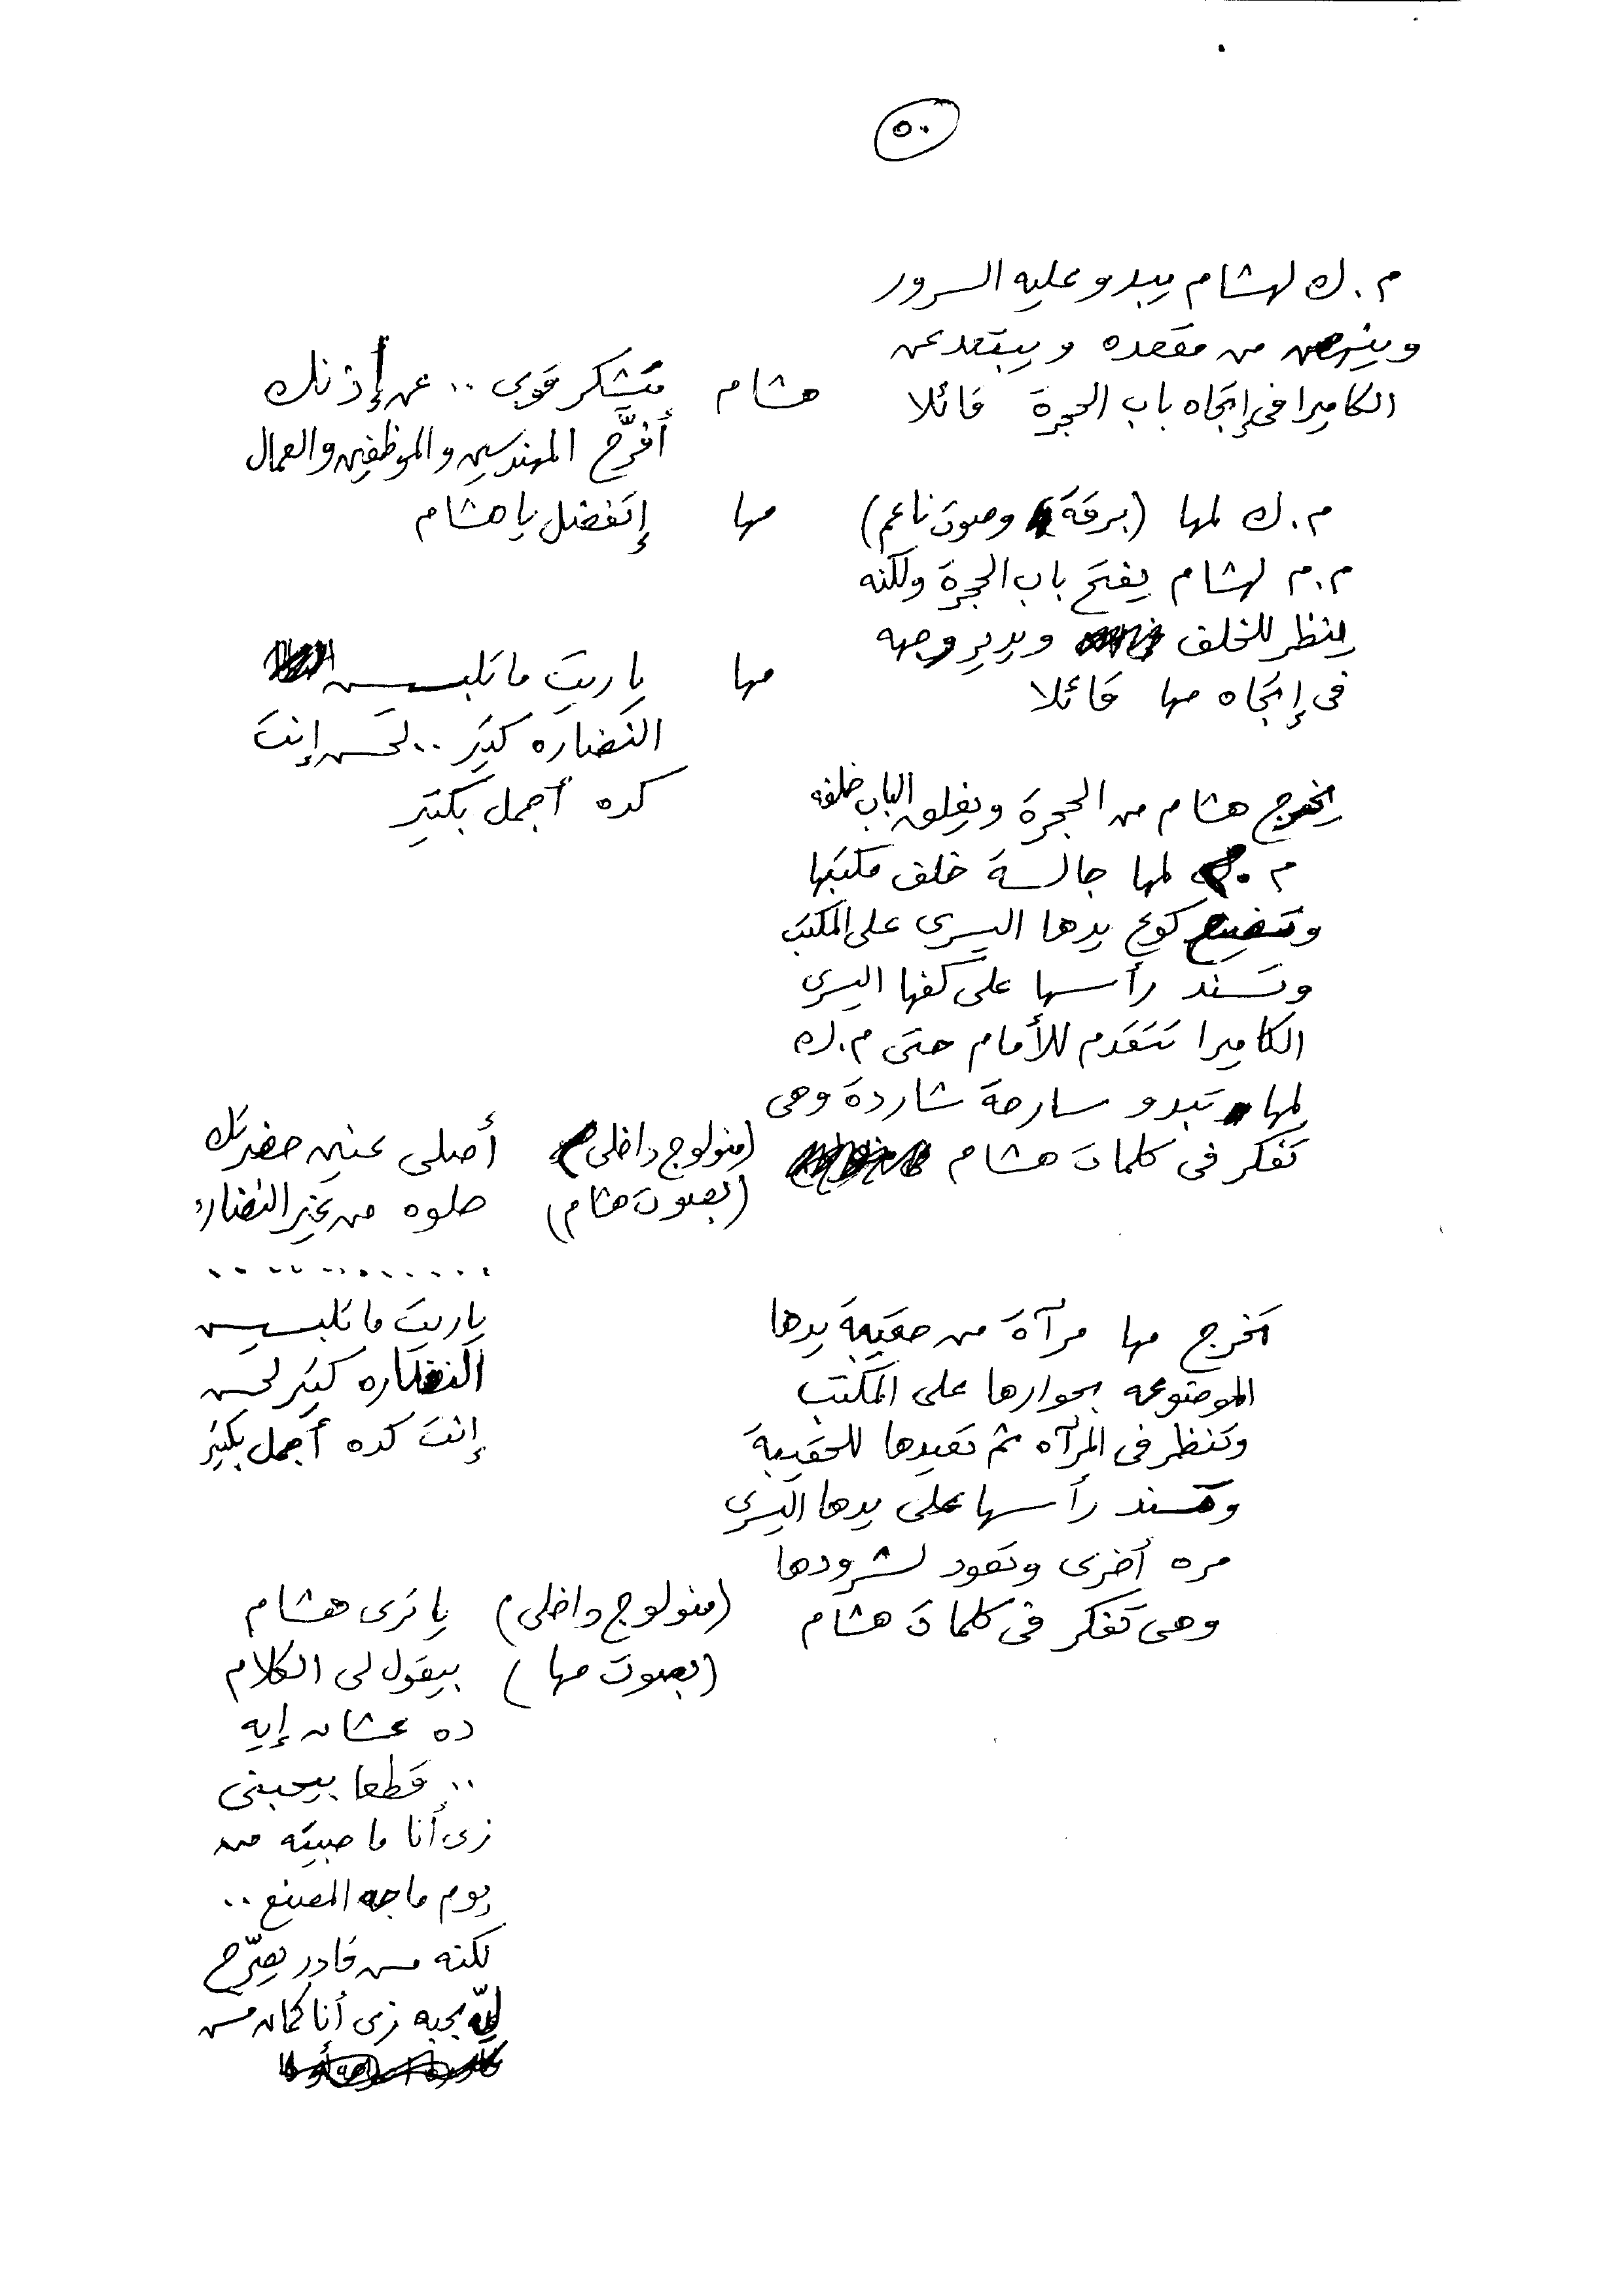 ٥٠
م . ك لهشام يبدو عليه السرور
وينهض من مقعده ويبتعد عن
الكاميرا فى إتجاه باب الحجرة قائلا
هشام
متشكر قوى .. عن إذنك
أفرَّح المهندسين والموظفين والعمال
م . ك لمها (برقة وصوت ناعم)
مها
إتفضل يا هشام
م . م لهشام يفتح باب الحجرة ولكنه
ينظر للخلف ويدير وجهه
فى إتجاه مها قائلا
مها
ياريت ما تلبسيس
النضاره كتير .. لحسن إنت
كده أجمل بكتير
يخرج هشام من الحجرة ويغلق الباب خلفه
م . لمها جالسة خلف مكتبها
وتضع كوع يدها اليسرى على المكتب
وتسند رأسها على كفها اليسرى
الكاميرا تتقدم للأمام حتى م . ك
لمها تبدو سارحة شاردة وهى
تفكر فى كلمات هشام
(منولوج داخلى)
(بصوت هشام)
أصلى عنين حضرتك
حلوه من غير النضاره
..............
ياريت ما تلبسيس
النضاره كتير لحسن
إنت كده أجمل بكتير
تخرج مها مرآة من حقيبة يدها
الموضوعه بجوارها على المكتب
وتنظر فى المرآه ثم تعيدها للحقيبة
وتسند رأسها على يدها اليسرى
مره أخرى وتعود لشرودها
وهى تفكر فى كلمات هشام
(منولوج داخلى)
(بصوت مها)
يا ترى هشام
بيقول لى الكلام
ده عشان إيه
.. قطعا بيحبنى
زى أنا ما حبيته من
يوم ما جه المصنع ..
لكنه مس قادر يصرَّح
لىّ بحبه زى أنا كمان مس